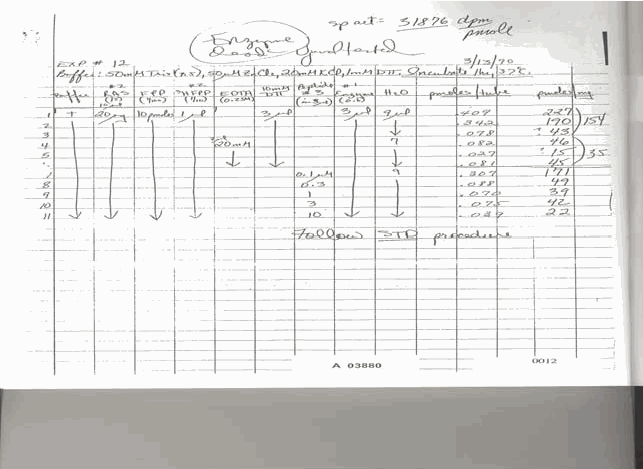 sp act = 31876 dpm
pmole
Enzyme
EXP # 12
3/13/90
Buffer: 50mM Tris (7.5), 50µM ZnCl2, 20mM KCl, 1mM DTT. Incubate 1hr, 37°C.
Buffer RAS FPP 3HFPP EDTA 10mM DTT Peptide #3 Enzyme H2O pmoles/tube pmoles/mg
1 + 20µg 10pmoles 1µl 3µl 3µl 9µl .409 227
2 .342 190 154
3 .078 43
4 20mM 7 .082 46
5 .027 15 35
.081 45
0.1µM 9 .307 171
8 0.3 .088 49
9 1 .070 39
10 3 .075 42
11 10 .039 22
Follow STD procedure
A 03880
0012